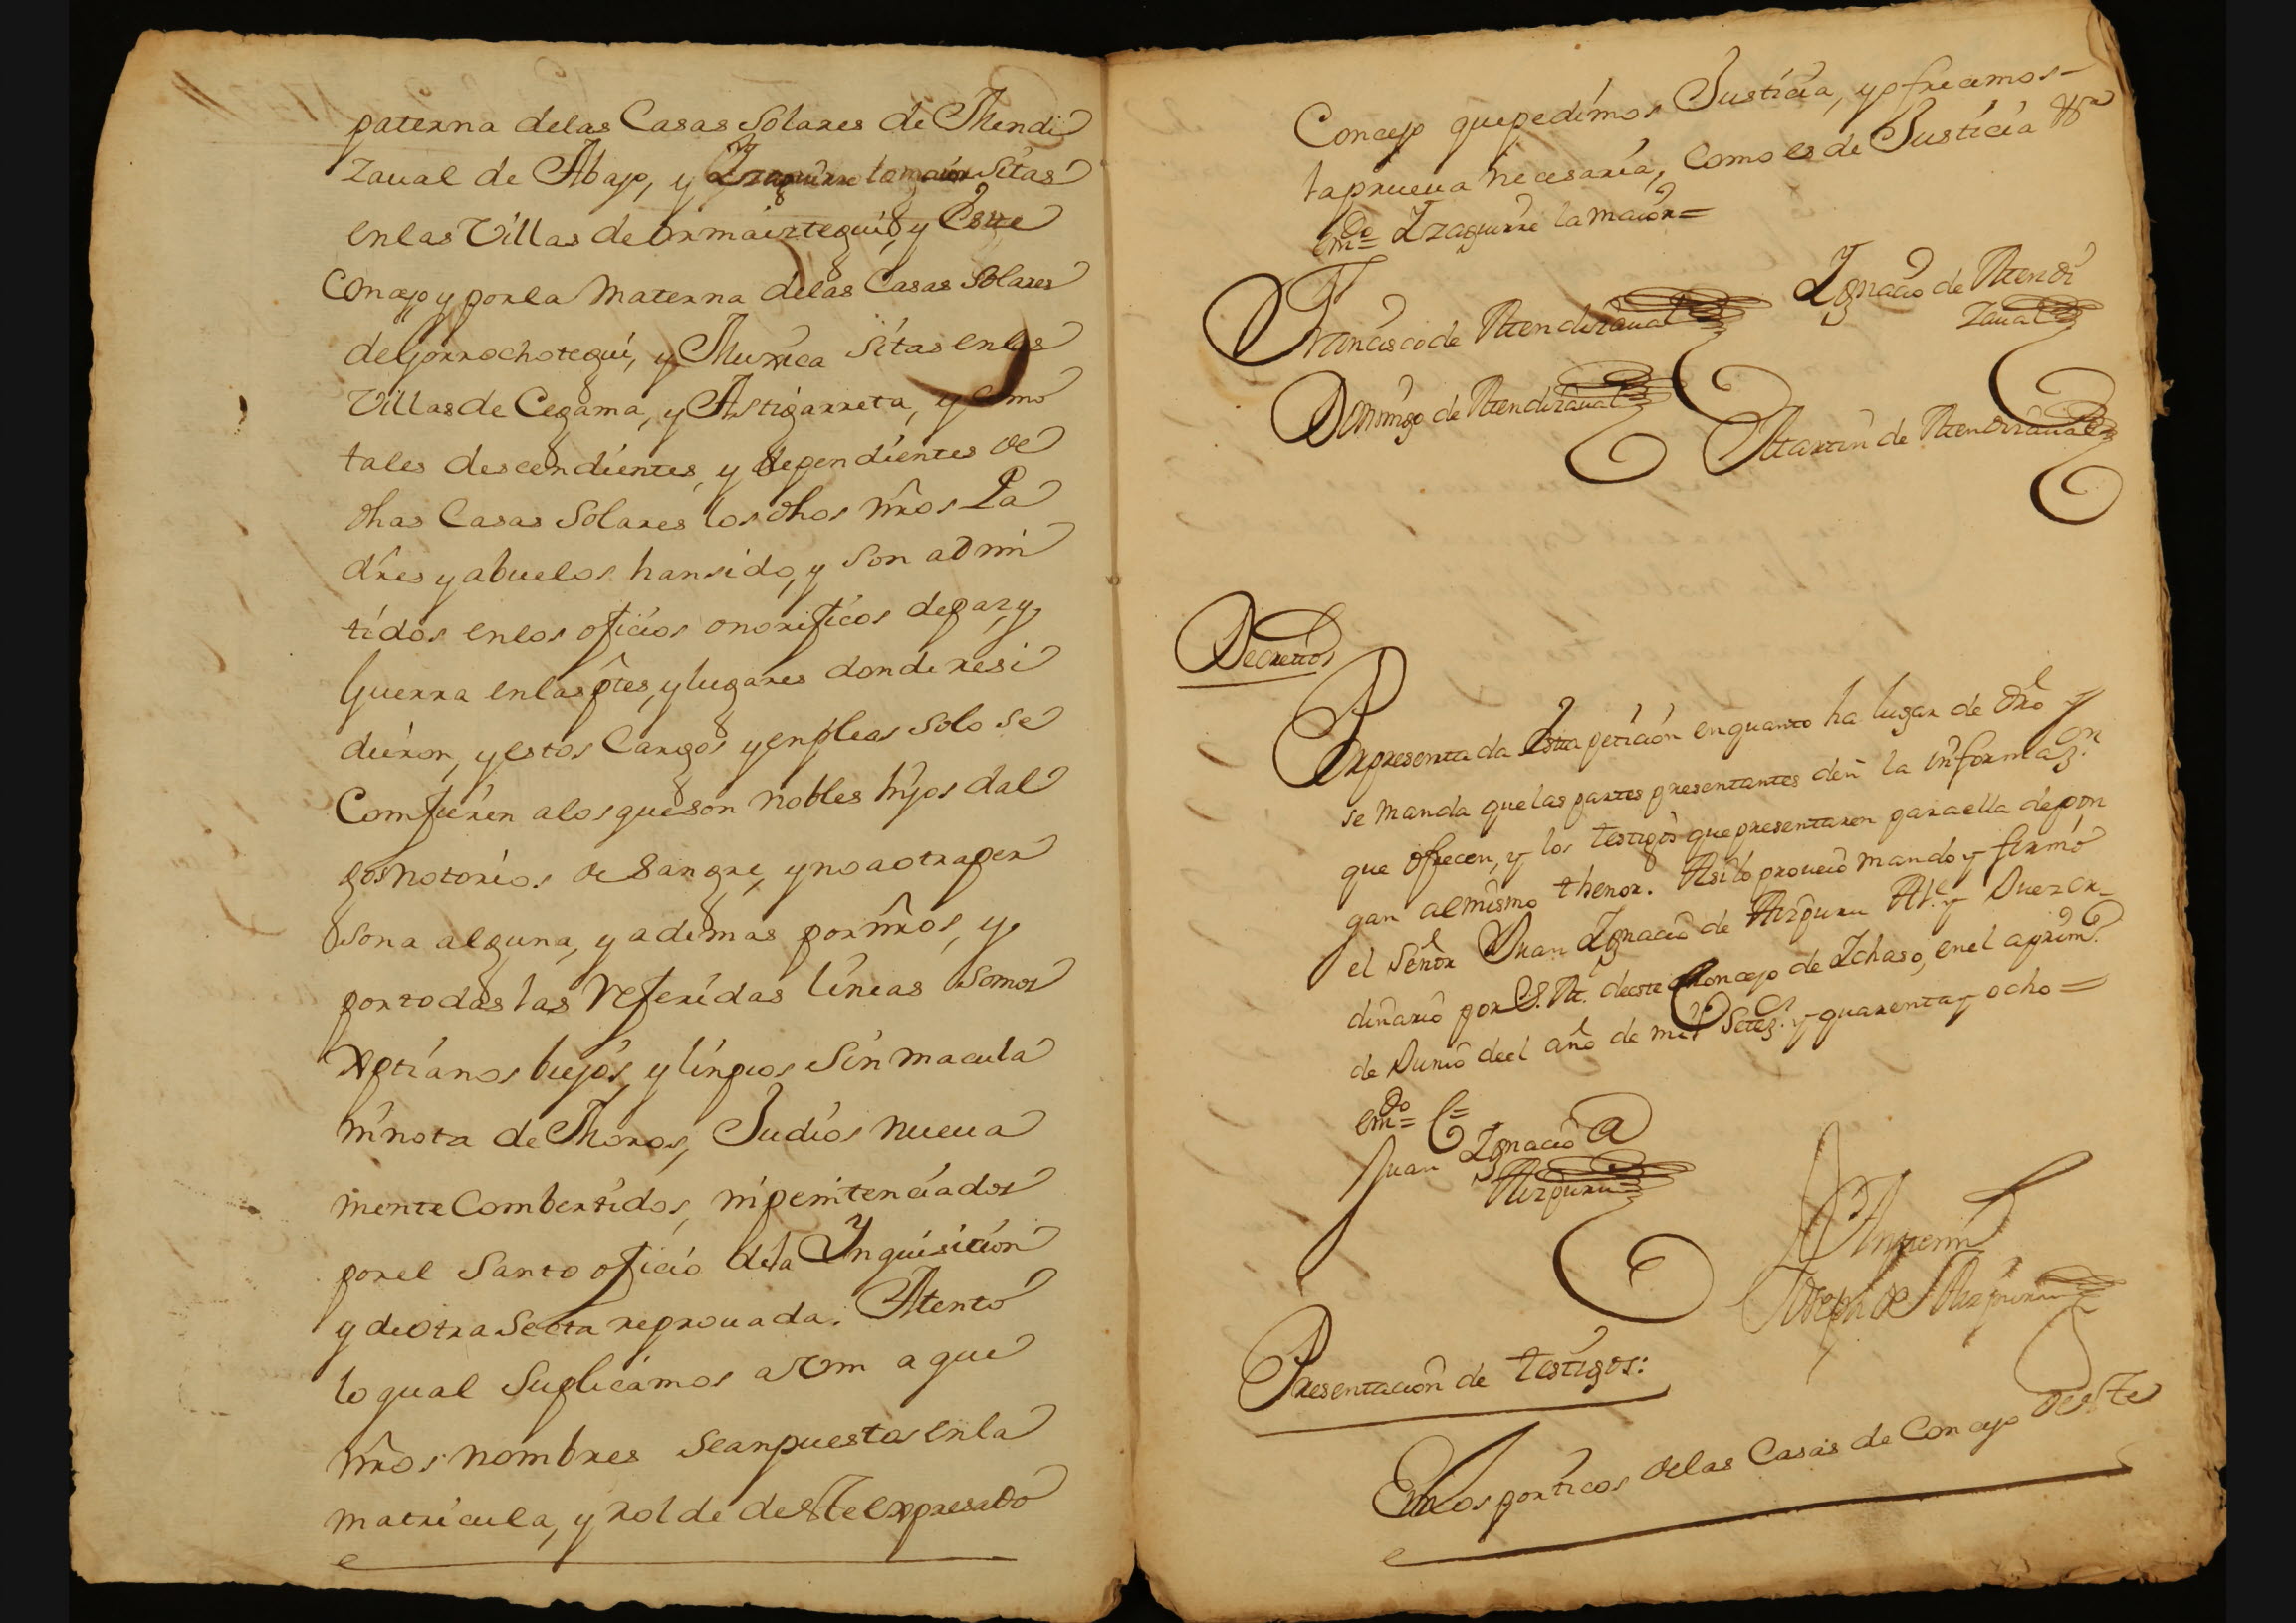 paterna delas Casas Solares de Mendi
zaual de Abajo, y Yzaguirre lamaior Sitas
enlas Villas de ormaiztegui, y Este
Concejo y porla Materna delas Casas Solares
deGorrochotegui, y Muxica Sitas enlas
Villas de Cegama, y Astigarreta, y como
tales descendientes, y dependientes de
dhas Casas Solares los dhos nr̃os Pa
dres y abuelos han sido, y son admi
tidos enlos oficios onorificos depaz, y
Guerra enlas ptes, y lugares donde resi
dieron, y estos Cargos y enpleos solo se
Comfieren alos queson nobles hijos dal
gos notorios de Sangre, y no aotra per
sona alguna, y ademas por nr̃os, y
por todas las referidas lineas somos
Xptianos biejos, y linpios sin macula
ninota de Moros, Judios nueua
mente Combertidos, nipenitenciados
porel Santo oficio dela Ynquisicion
y deotra Secta reprouada. Atento
lo qual Suplicamos a Vm a que
nr̃os nombres seanpuestos enla
matricula, y rolde deste expresado
Concejo quepedimos Justicia, yofrecemos
laprueua necesaria, Como es de Justicia &a
emdo = Yzaguirre la maior =
Francisco de Mendizaual
Ygnacio de Mendi
zaual
Domingo de Mendizaual
Martin de Mendizaual
Decreto
Por presentada Esta peticion enquanto ha lugar de dro y
se manda quelas partes presentantes den la informazon
que ofrecen, y los testigos que presentaren paraella depon
gan alMismo thenor. Asilo proueio mando y firmó
el Señor Juan Ygnacio de Aizpuru Ale. y Juez or
dinario por S. M. deeste Concejo de Ychaso, enel aprimo.
de Junio deel año de mil Setezs. y quarenta y ocho =
emdo = C =
Juan Ygnacio de
Aizpuru
Antemi
Joseph de Aizpuru
Presentacion de testigos:
Enlos porticos delas Casas de Concejo deeste